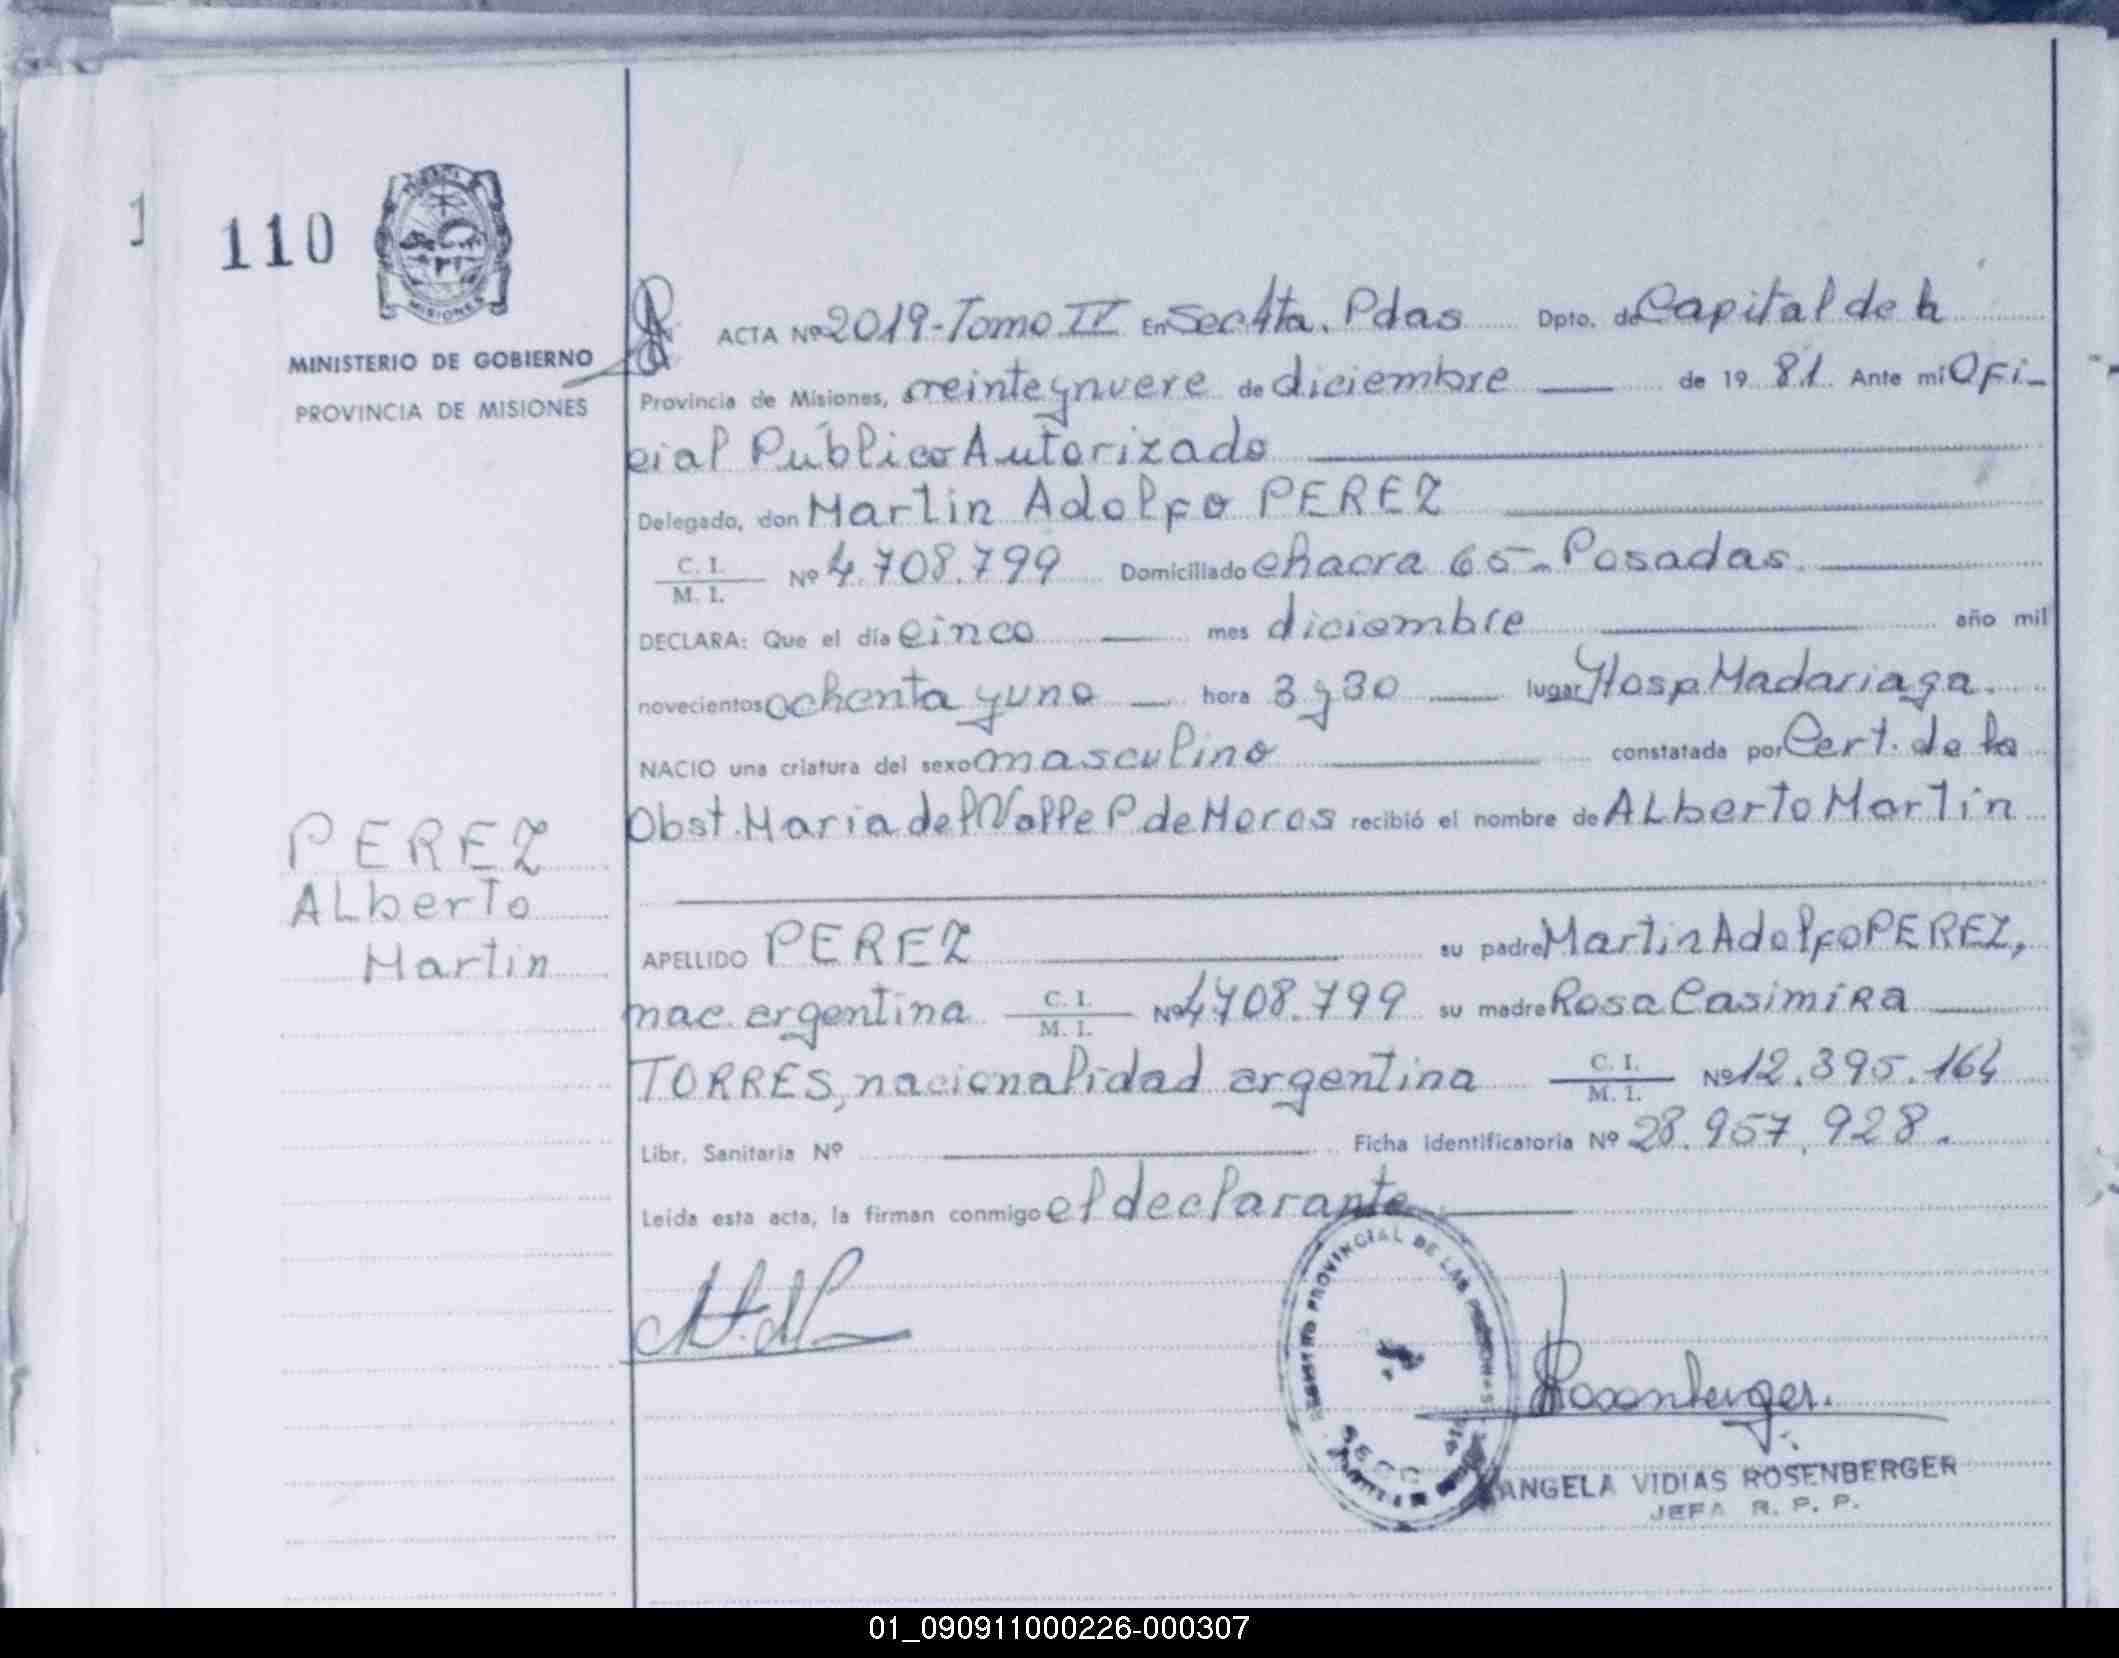 1
110
MISIONES
MINISTERIO DE GOBIERNO
PROVINCIA DE MISIONES
ACTA Nº 2019-Tomo IV En Sec 4ta. Pdas Dpto. de Capital de la
Provincia de Misiones, veinte y nueve de diciembre de 19 81. Ante mi Ofi-
cial Público Autorizado
Delegado, don Martin Adolfo PEREZ
C. I.
M. I. Nº 4.708.799 Domiciliado chacra 65- Posadas.
DECLARA: Que el día cinco mes diciembre año mil
novecientos ochenta y uno hora 3 y 30 lugar Hosp Madariaga.
NACIO una criatura del sexo masculino constatada por Cert. de la
Obst. Maria del Valle P de recibió el nombre de ALberto Martin
PEREZ
ALberto
Martin
APELLIDO PEREZ su padre Martin Adolfo PEREZ,
nac. argentina C. I.
M. I. Nº 4708.799 su madre Rosa Casimira
TORRES, nacionalidad argentina C. I.
M. I. Nº 12.395.164
Libr. Sanitaria Nº Ficha identificatoria Nº 28.957.928.
Leída esta acta, la firman conmigo el declarante
PROVINCIAL DE LAS
Rosenberger.
ANGELA VIDIAS ROSENBERGER
JEFA R. P. P.
01_090911000226-000307